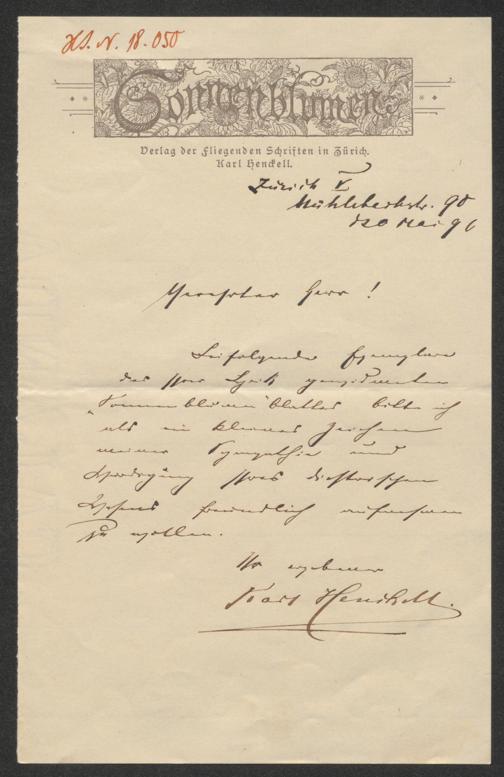 H.I.N. 18.050
Sonnenblumen
Verlag der Fliegenden Schriften in Zürich.
Karl Henckell.
Zürich V
Mühlebachstr. 90
d 20 Mai 96
Verehrter Herr!
Beifolgende Exemplare
des Ihrer Lyrik gewidmeten
„Sonnenblumen"blattes bitte ich
als ein kleines Zeichen
meiner Sympathie und
Schätzung Ihres dichterischen
Schaffens freundlich aufnehmen
zu wollen.
Ihr ergebener
Karl Henckell.